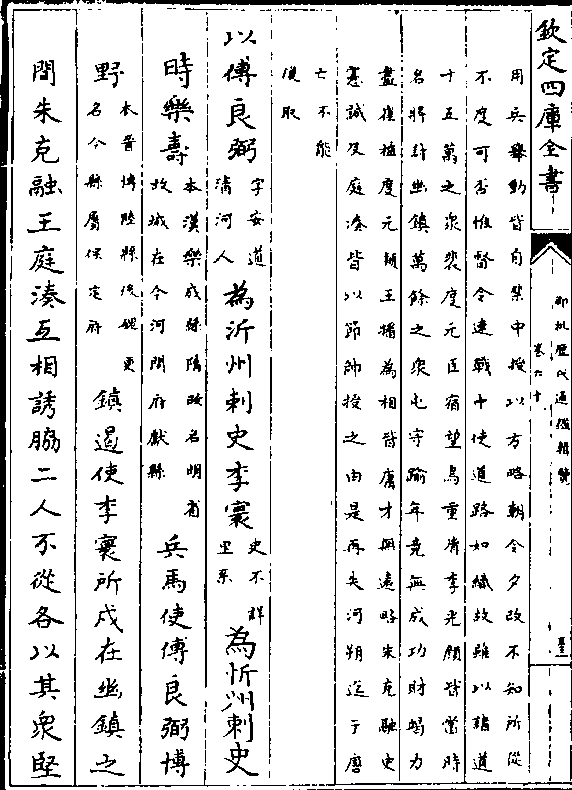 欽定四庫全書
御批歷代通鑑輯覽
卷六十
用兵舉動皆自禁中授以方略朝令夕改不知所從
不度可否惟督令速戰中使道路如織故雖以諸道
十五萬之衆裴度元臣宿望烏重胤李光顔皆當時
名將討幽鎮萬餘之衆屯守踰年竟無成功財竭力
盡崔植杜元穎王播為相皆庸才無遠略朱克融史
憲誠及庭湊皆以節鉞授之由是再失河朔迄于唐
亡不能
復取
以傅良弼字安道清河人為沂州刺史李寰史不詳里系為忻州刺史
時樂壽本漢樂成縣隋改名明省故城在今河間府獻縣兵馬使傅良弼博
野本晉博陸縣後魏更名今縣屬保定府鎮遏使李寰所戍在幽鎮之
間朱克融王庭湊互相誘脇二人不從各以其衆堅